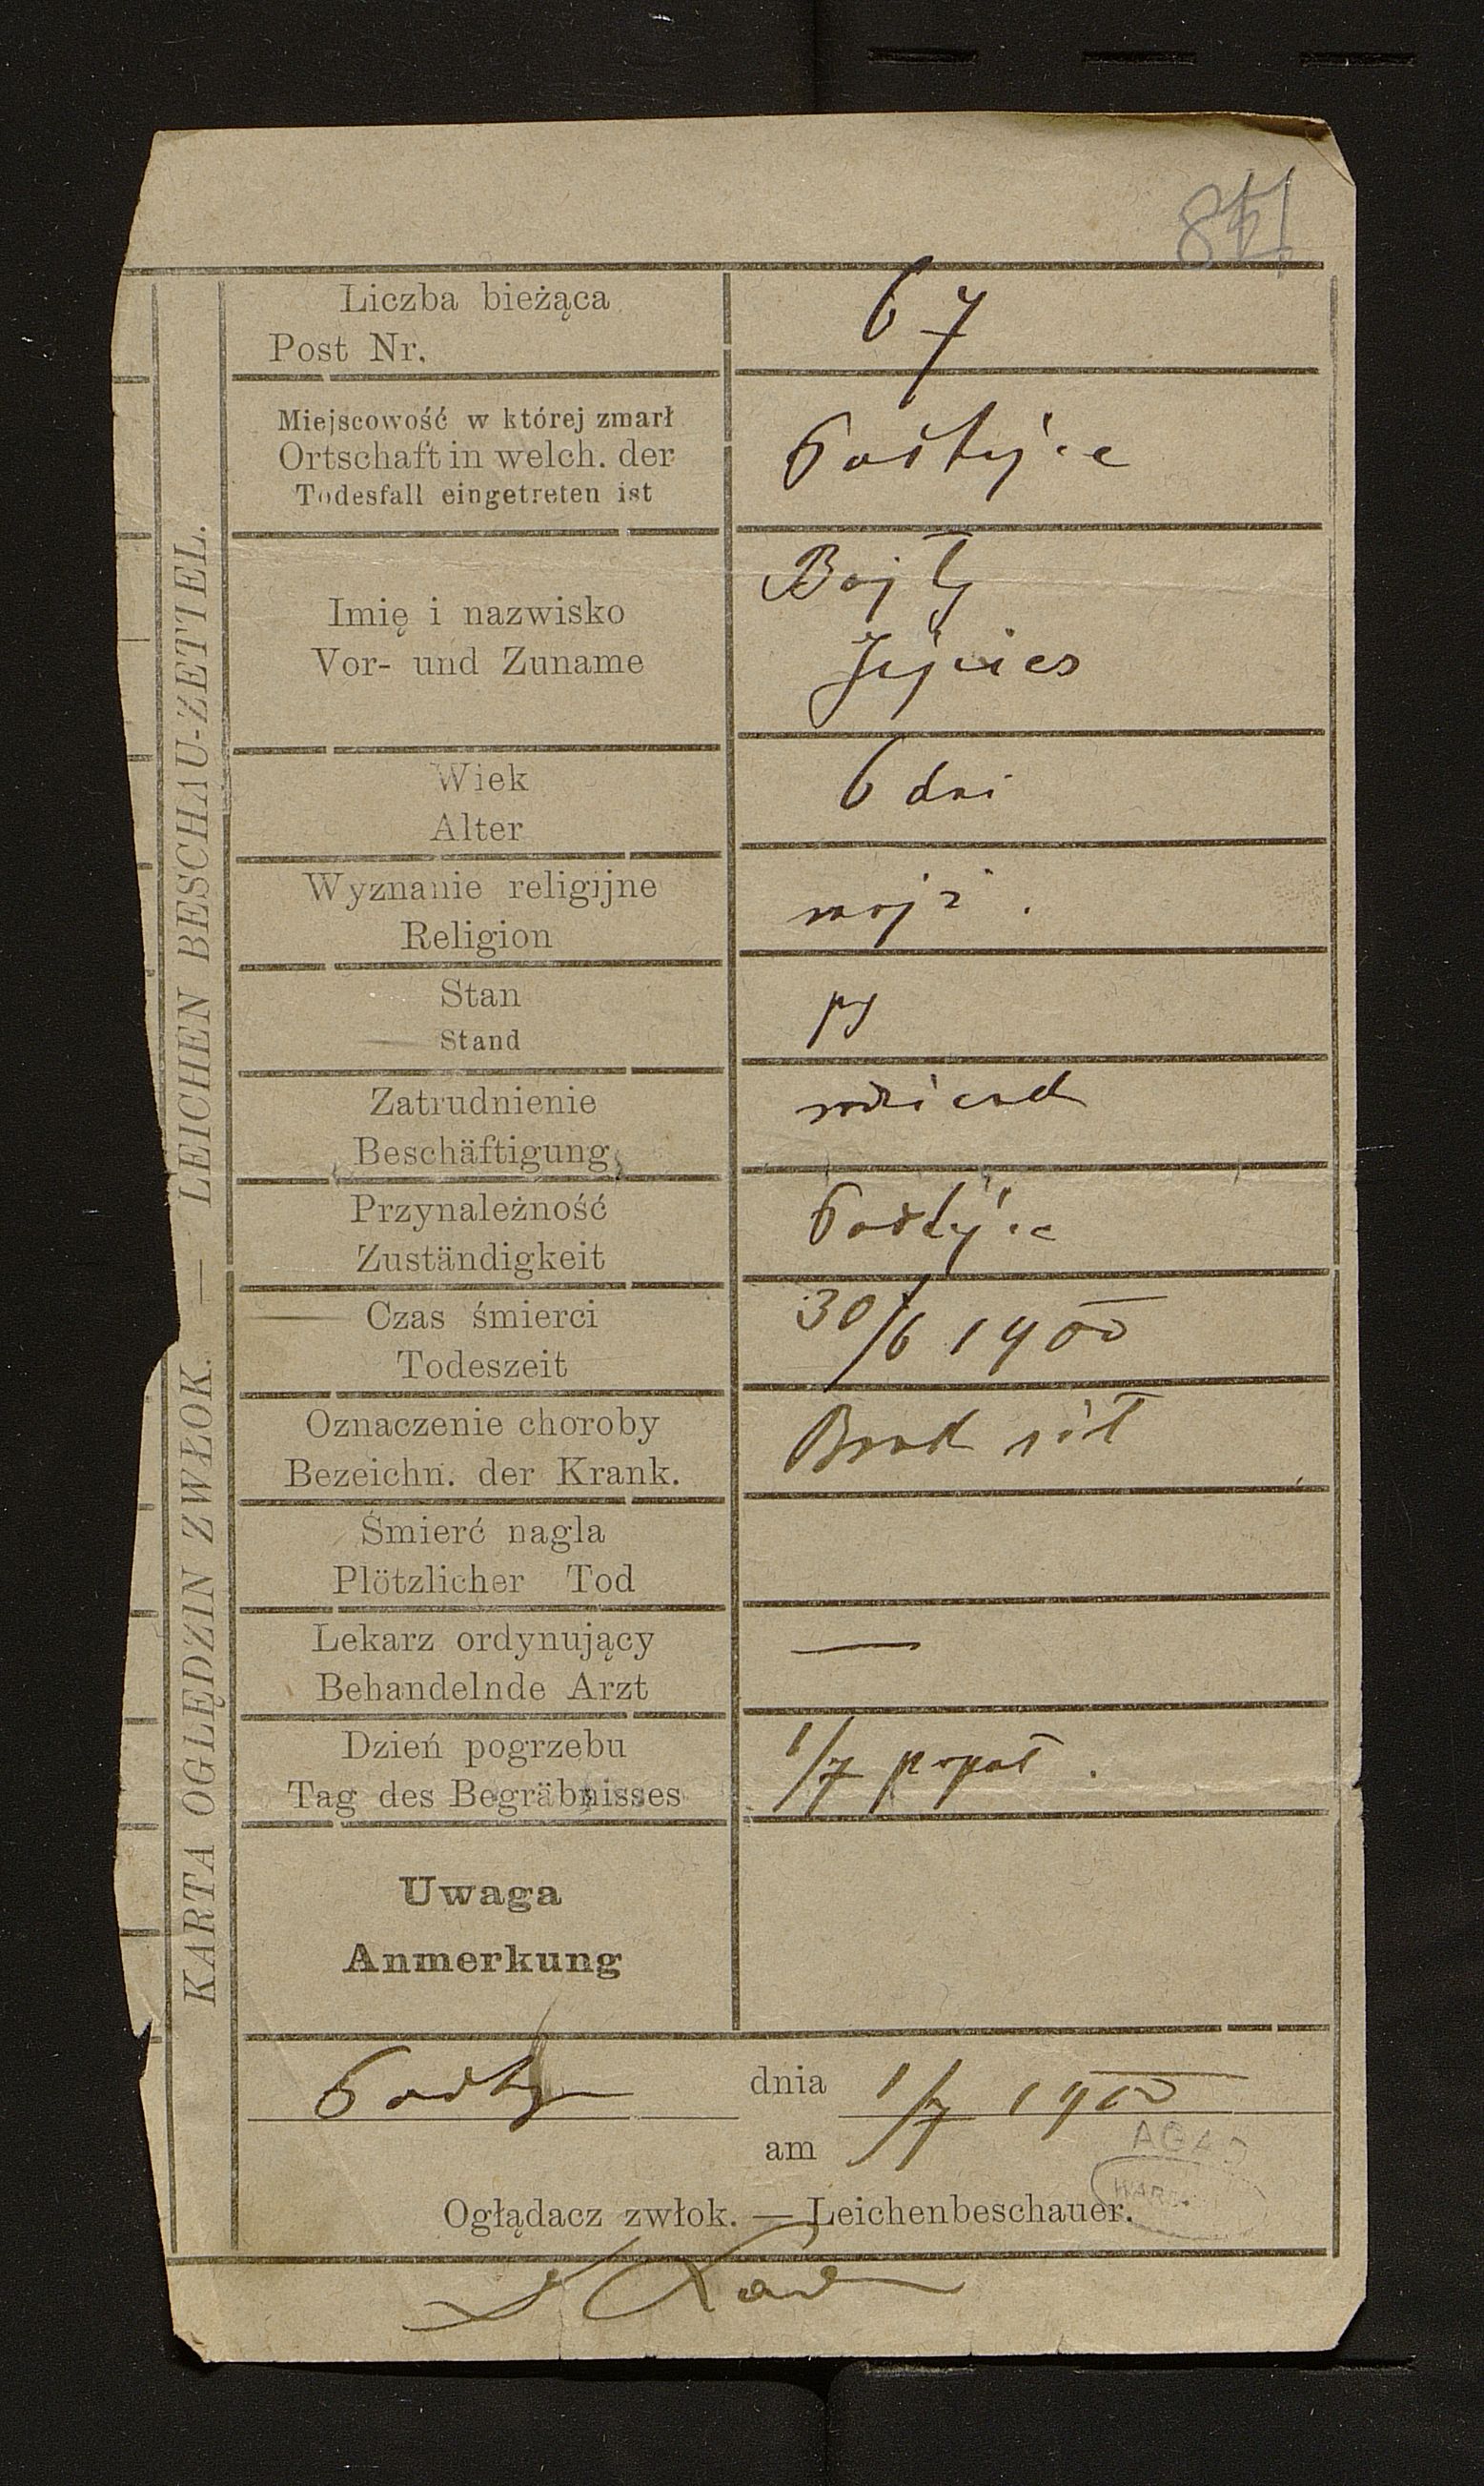 Liczba bieżąca
Post Nr.
67
Miejscowość w której zmarł
Ortschaft in welch. der
Todesfall eingetreten ist
Imię i nazwisko
Vor- und Zuname
Wiek
Alter
6 dni
Wyznanie religijne
Religion
mojż.
Stan
Stand
Zatrudnienie
Beschäftigung
Przynależność
Zuständigkeit
Czas śmierci
Todeszeit
30/6 1900
Oznaczenie choroby
Bezeichn. der Krank.
Brak sił
Śmierć nagla
Plötzlicher Tod
Lekarz ordynujący
Behandelnde Arzt
—
Dzień pogrzebu
Tag des Begräbnisses
1/7 popoł.
Uwaga
Anmerkung
dnia
am
1/7 1900
Oglądacz zwłok. — Leichenbeschauer.
KARTA OGLĘDZIN ZWŁOK. — LEICHEN BESCHAU-ZETTEL.
AGAD